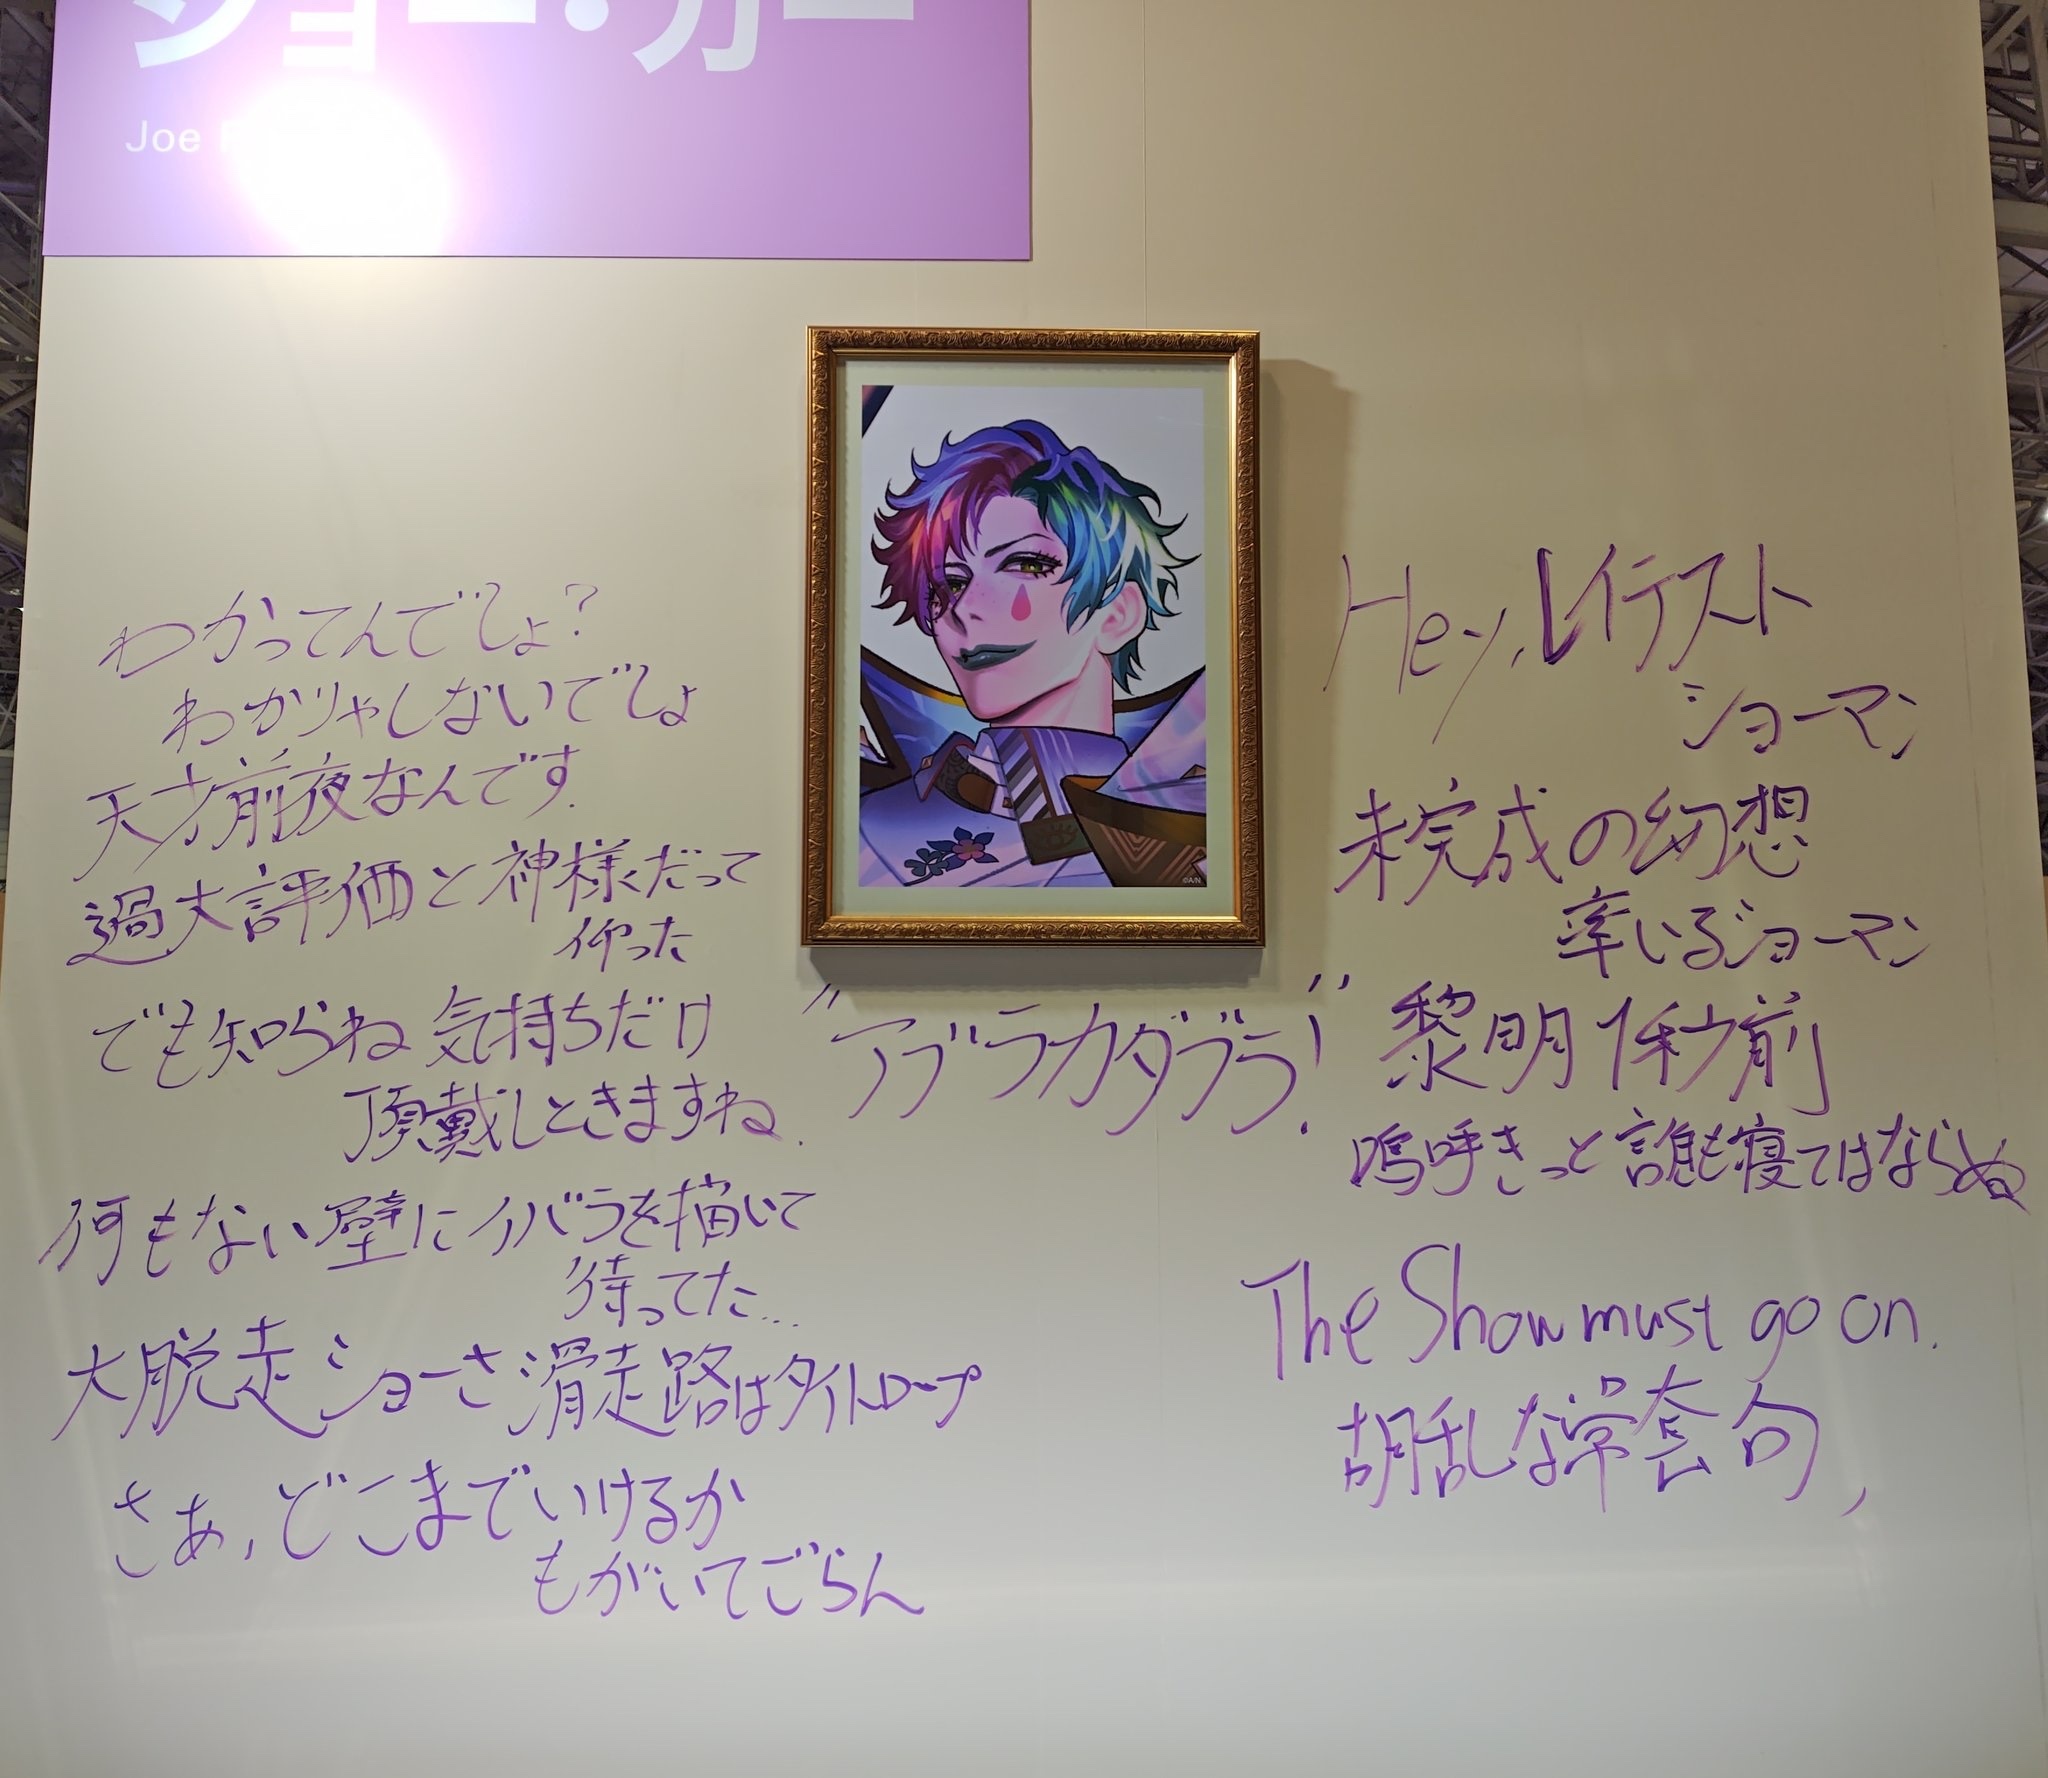 ジョー・力一
Joe
わかってんでしょ?
わかりゃしないでしょ
天才前夜なんです.
過大評価と神様だって
仰った
でも知らね気持ちだけ
頂戴しときますね.
何もない壁にイバラを描いて
待ってた...
大脱走ショーさ滑走路はタイトロープ
さあ,どこまでいけるか
もがいてごらん
"アブラカダブラ!"
Hey,レイテスト
ショーマン
未完成の幻想
率いるショーマン
黎明1秒前
嗚呼きっと誰も寝てはならぬ
The Show must go on.
胡乱な常套句,
©A/N